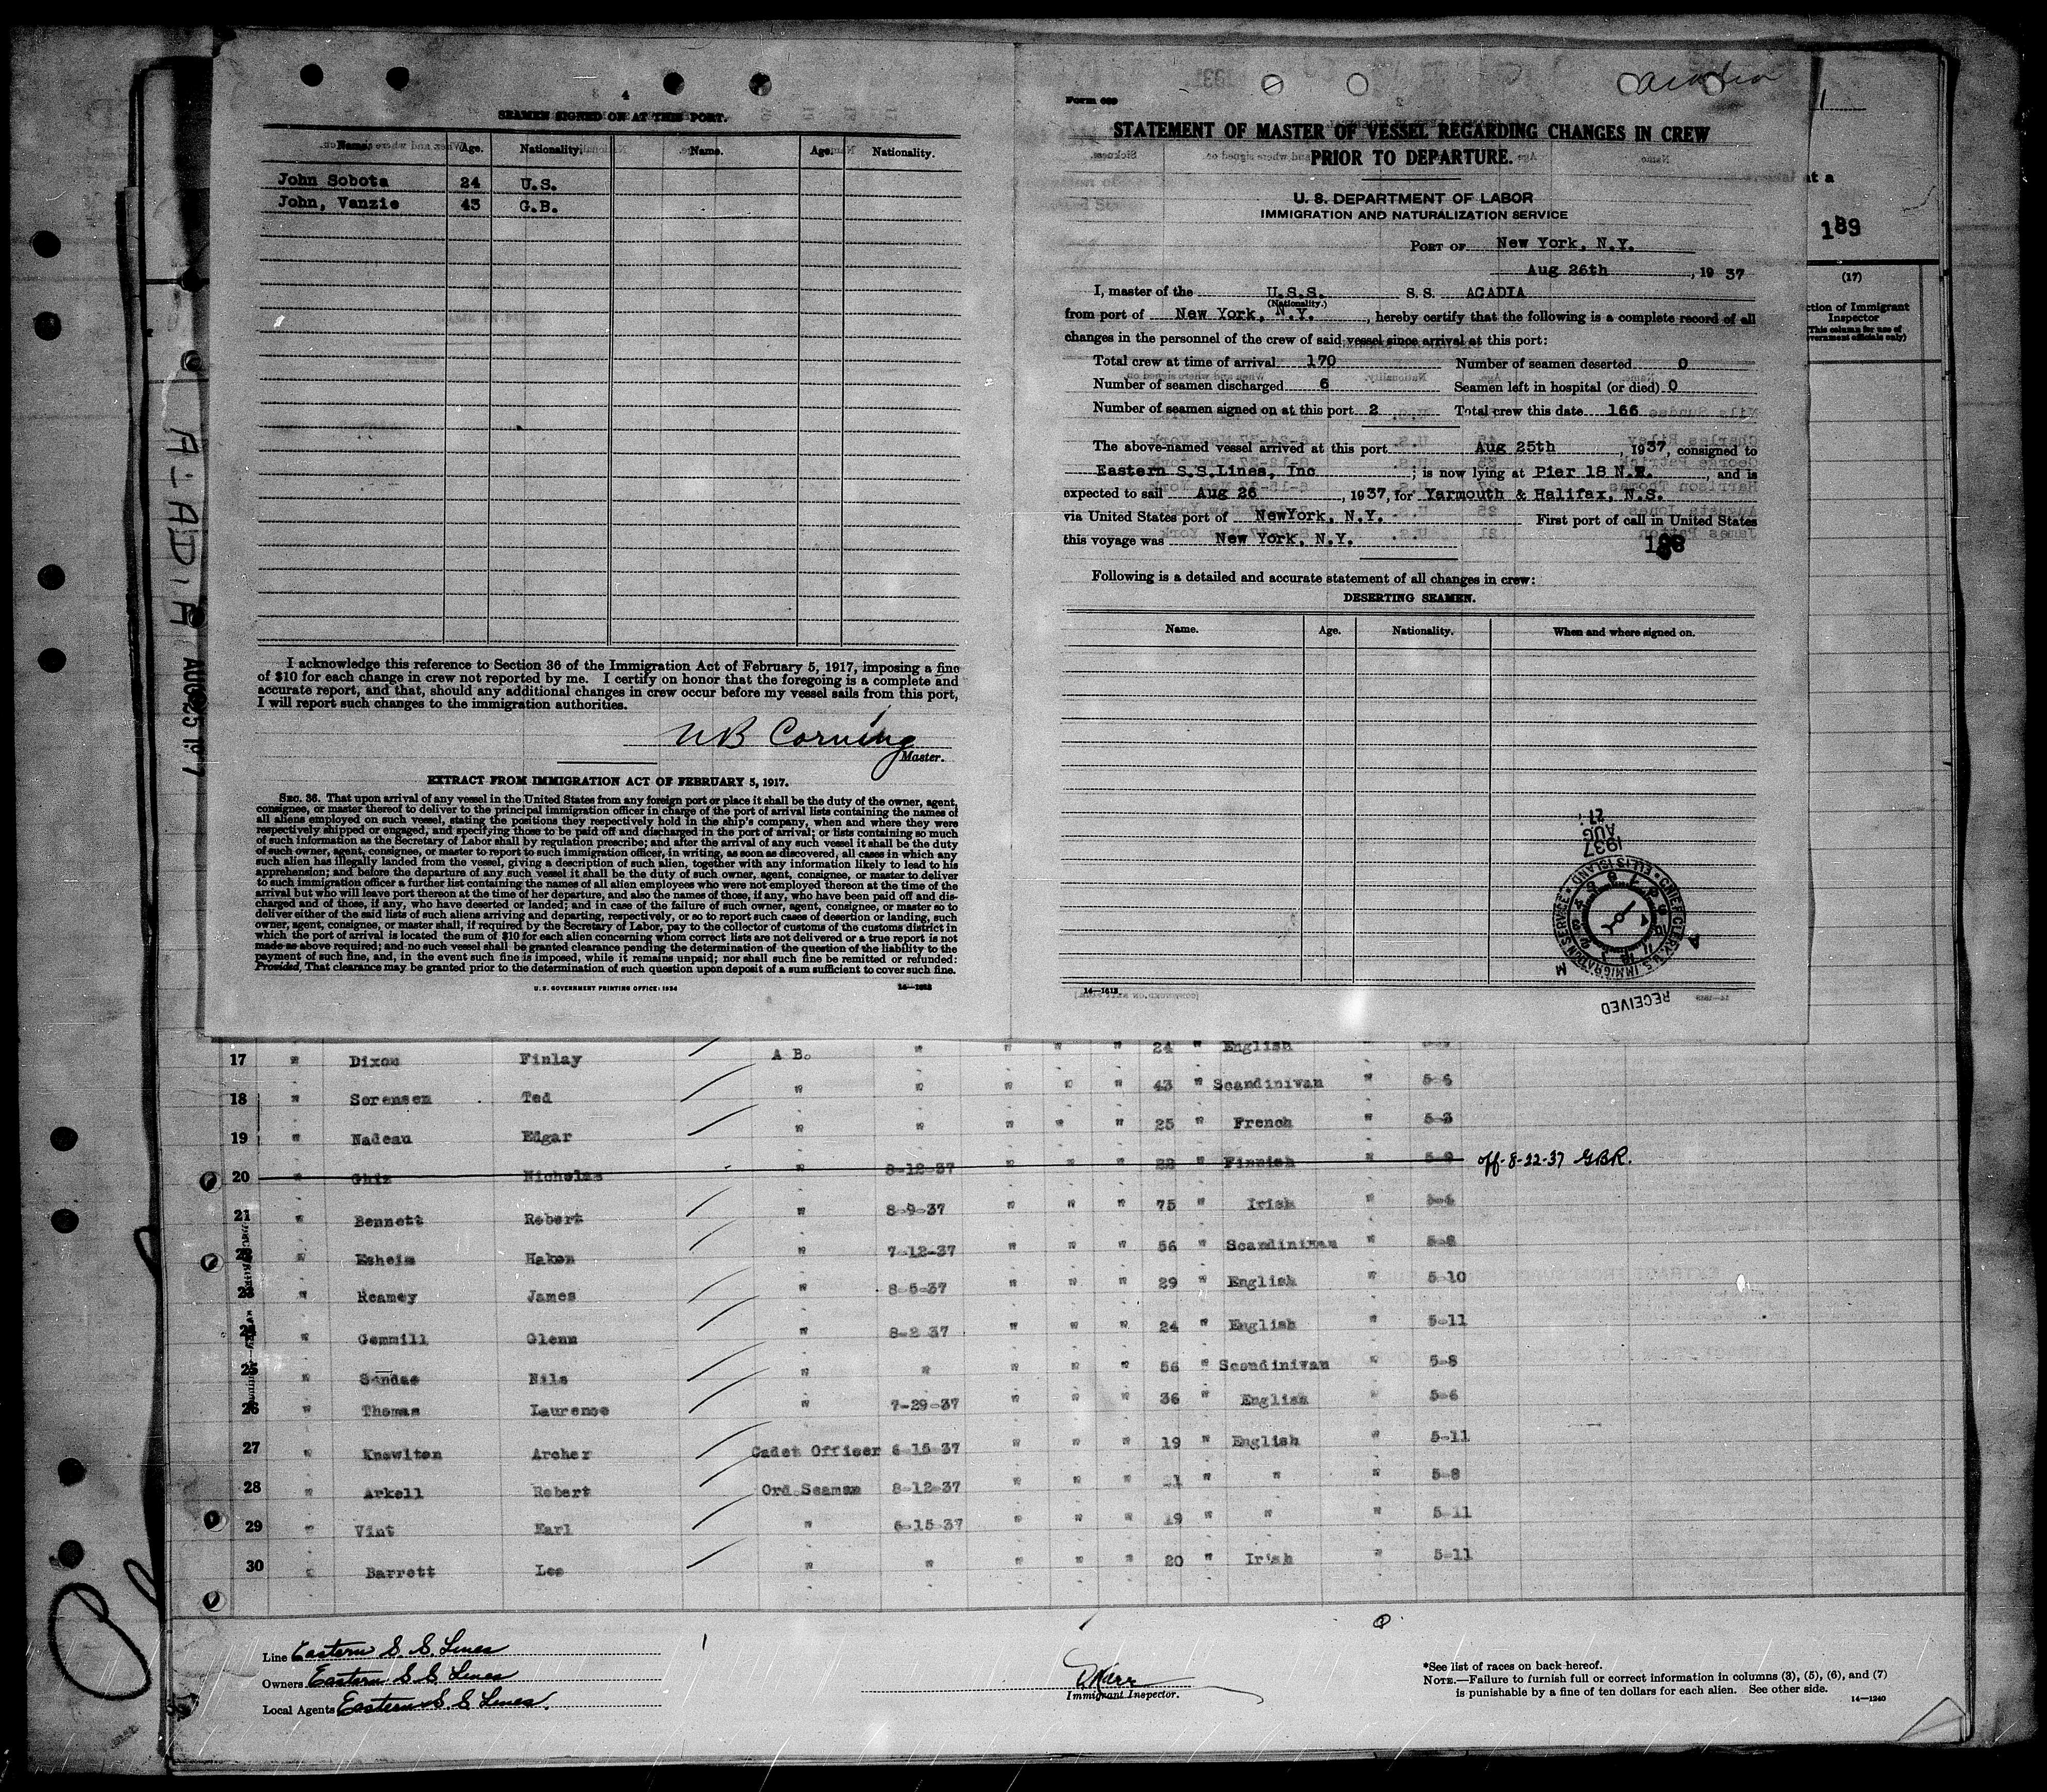 4
SEAMEN SIGNED ON AT THIS PORT.
Name. Age. Nationality. Name. Age. Nationality.
John Sobota 24 U.S.
John, Vanzie 43 G.B.
I acknowledge this reference to Section 36 of the Immigration Act of February 5, 1917, imposing a fine
of $10 for each change in crew not reported by me. I certify on honor that the foregoing is a complete and
accurate report, and that, should any additional changes in crew occur before my vessel sails from this port,
I will report such changes to the immigration authorities.
Corning
Master.
EXTRACT FROM IMMIGRATION ACT OF FEBRUARY 5, 1917.
SEC. 36. That upon arrival of any vessel in the United States from any foreign port or place it shall be the duty of the owner, agent,
consignee, or master thereof to deliver to the principal immigration officer in charge of the port of arrival lists containing the names of
all aliens employed on such vessel, stating the positions they respectively hold in the ship's company, when and where they were
respectively shipped or engaged, and specifying those to be paid off and discharged in the port of arrival; or lists containing so much
of such information as the Secretary of Labor shall by regulation prescribe; and after the arrival of any such vessel it shall be the duty
of such owner, agent, consignee, or master to report to such immigration officer, in writing, as soon as discovered, all cases in which any
such alien has illegally landed from the vessel, giving a description of such alien, together with any information likely to lead to his
apprehension; and before the departure of any such vessel it shall be the duty of such owner, agent, consignee, or master to deliver
to such immigration officer a further list containing the names of all alien employees who were not employed thereon at the time of the
arrival but who will leave port thereon at the time of her departure, and also the names of those, if any, who have been paid off and dis-
charged and of those, if any, who have deserted or landed; and in case of the failure of such owner, agent, consignee, or master so to
deliver either of the said lists of such aliens arriving and departing, respectively, or so to report such cases of desertion or landing, such
owner, agent, consignee, or master shall, if required by the Secretary of Labor, pay to the collector of customs of the customs district in
which the port of arrival is located the sum of $10 for each alien concerning whom correct lists are not delivered or a true report is not
made as above required; and no such vessel shall be granted clearance pending the determination of the question of the liability to the
payment of such fine, and, in the event such fine is imposed, while it remains unpaid; nor shall such fine be remitted or refunded:
Provided, That clearance may be granted prior to the determination of such question upon deposit of a sum sufficient to cover such fine.
U. S. GOVERNMENT PRINTING OFFICE: 1934
Form 689
Acadia
STATEMENT OF MASTER OF VESSEL REGARDING CHANGES IN CREW
PRIOR TO DEPARTURE.
U. S. DEPARTMENT OF LABOR
IMMIGRATION AND NATURALIZATION SERVICE
PORT OF New York, N.Y.
Aug 26th, 19 37
I, master of the U.S.S. S. S. ACADIA
(Nationality.)
from port of New York, N.Y., hereby certify that the following is a complete record of all
changes in the personnel of the crew of said vessel since arrival at this port:
Total crew at time of arrival 170 Number of seamen deserted 0
Number of seamen discharged 6 Seamen left in hospital (or died) 0
Number of seamen signed on at this port 2 Total crew this date 166
The above-named vessel arrived at this port Aug 25th, 1937, consigned to
Eastern S.S.Lines, Inc; is now lying at Pier 18 N.R., and is
expected to sail Aug 26, 1937, for Yarmouth & Halifax, N.S.
via United States port of NewYork, N.Y. First port of call in United States
this voyage was New York, N.Y.
Following is a detailed and accurate statement of all changes in crew:
DESERTING SEAMEN.
Name. Age. Nationality. When and where signed on.
1937
AUG
27
CHIEF CLERK U. S. IMMIGRATION SERVICE ELLIS ISLAND
RECEIVED
14—1613
1
at a
189
(17)
ction of Immigrant
Inspector
(This column for use of
overnment officials only)
AUG 25 1937
17 " Dixon Finlay A B. " " " " 24 " English "
18 " Sorensen Ted " " " " " 43 " Scandinivan " 5-6
19 " Nadeau Edgar " " " " " 25 " French " 5-3
20 " Ghiz Nicholas " 8-12-37 " " " 22 " Finnish " 5-9 off-8-22-37 GBR.
21 " Bennett Robert " 8-9-37 " " " 75 " Irish "
22 " Esheim Haken " 7-12-37 " " " 56 " Scandinivan " 5-8
23 " Reamey James " 8-5-37 " " " 29 " English " 5-10
24 " Gemmill Glenn " 8-2 37 " " " 24 " English " 5-11
25 " Sundae Nils " " " " " 56 " Scandinivan " 5-8
26 " Thomas Laurence " 7-29-37 " " " 36 " English " 5-6
27 " Knowlton Archer Cadet Officer 6-15-37 " " " 19 " English " 5-11
28 " Arkell Robert Ord Seaman 8-12-37 " " " 21 " " " 5-8
29 " Vint Earl " 6-15-37 " " " 19 " " " 5-11
30 " Barrett Lee " " " " " 20 " Irish " 5-11
Line Eastern S. S. Lines
Owners Eastern S S Lines
Local Agents Eastern S. S. Lines.
Immigrant Inspector.
*See list of races on back hereof.
NOTE.—Failure to furnish full or correct information in columns (3), (5), (6), and (7)
is punishable by a fine of ten dollars for each alien. See other side.
14—1240